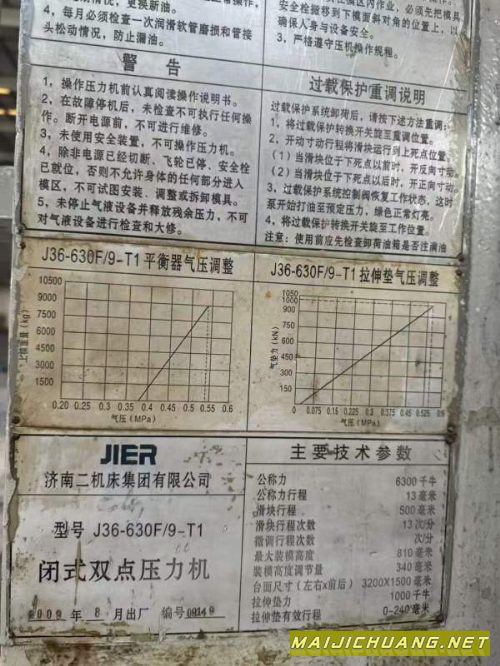 4，每月必须检查一次润滑软管磨损和管接
头松动情况，防止漏油。
确保人身与设备安全。
3，严格遵守压机操作规程。
警告
1，操作压力机前认真阅读操作说明书。
2，在故障停机后，未检查不可执行任何操
作。断开电源前，不可进行维修。
3，未使用安全装置，不可操作压力机。
4，除非电源已经切断、飞轮已停、安全栓
已就位，否则不允许身体的任何部分进入
模区，不可试图安装、调整或拆卸模具。
5，未停止气液设备并释放残余压力，不可
对气液设备进行检查和大修。
过载保护重调说明
过载保护系统卸荷后，请按下述方法重调：
1，将过载保护转换开关旋至重调位置。
2，开动寸动行程将滑块运行到上死点位置。
(1) 当滑块位于下死点以前时，开反向寸动。
(2) 当滑块位于下死点以后时，开正向寸动。
3，过载保护系统控制阀恢复工作状态，此时
泵开始打油至预定压力，绿色正常灯亮。
4，将过载保护转换开关旋至工作位置。
注意：使用前应先检查卸荷油箱是否注满油
J36-630F/9-T1平衡器气压调整
10500
9000
7500
6000
4500
3000
1500
上模重量(kg)
0.20 0.25 0.30 0.35 0.40 0.45 0.50 0.55 0.6
气压(MPa)
J36-630F/9-T1拉伸垫气压调整
1050
1000
900
750
600
450
300
150
气垫力(kN)
0 0.075 0.15 0.225 0.3 0.375 0.45 0.525 0.6
气压(MPa)
JIER
济南二机床集团有限公司
型号 J36-630F/9-T1
闭式双点压力机
2009 年 8 月出厂 编号 09149
主要技术参数
公称力 6300千牛
公称力行程 13毫米
滑块行程 500毫米
滑块行程次数 13次/分
微调行程次数 次/分
最大装模高度 810毫米
装模高度调节量 340毫米
台面尺寸(左右x前后) 3200X1500毫米
拉伸垫力 1000千牛
拉伸垫有效行程 0-240毫米
MAIJICHUANG.NET